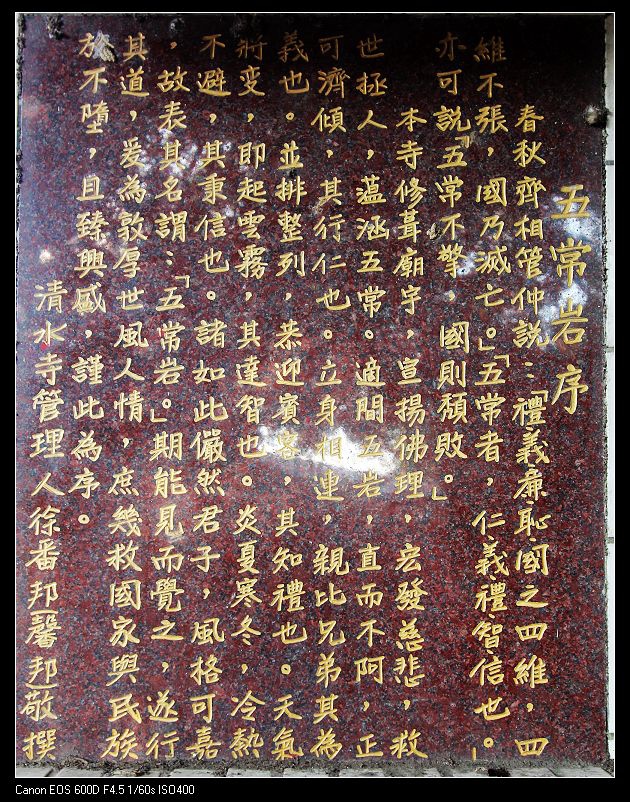 五常岩序
春秋齊相管仲說：「禮義廉恥國之四維，四
維不張，國乃滅亡。」「五常者，仁義禮智信也。」
亦可說「五常不擎，國則頹敗。」
本寺修葺廟宇，宣揚佛理，宏發慈悲，救
世拯人，蘊涵五常。適間五岩，直而不阿，正
可濟傾，其行仁也。立身相連，親比兄弟其為
義也。並排整列，恭迎賓客，其知禮也。天氣
將变，即起雲霧，其達智也。炎夏寒冬，冷熱
不避，其秉信也。諸如此儼然君子，風格可嘉
，故表其名謂：「五常岩。」期能見而覺之，遂行
其道，爰為敦厚世風人情，庶幾救國家與民族
於不墮，且臻興盛，謹此為序。
清水寺管理人徐番邦（馨邦）敬撰
Canon EOS 600D F4.5 1/60s ISO400